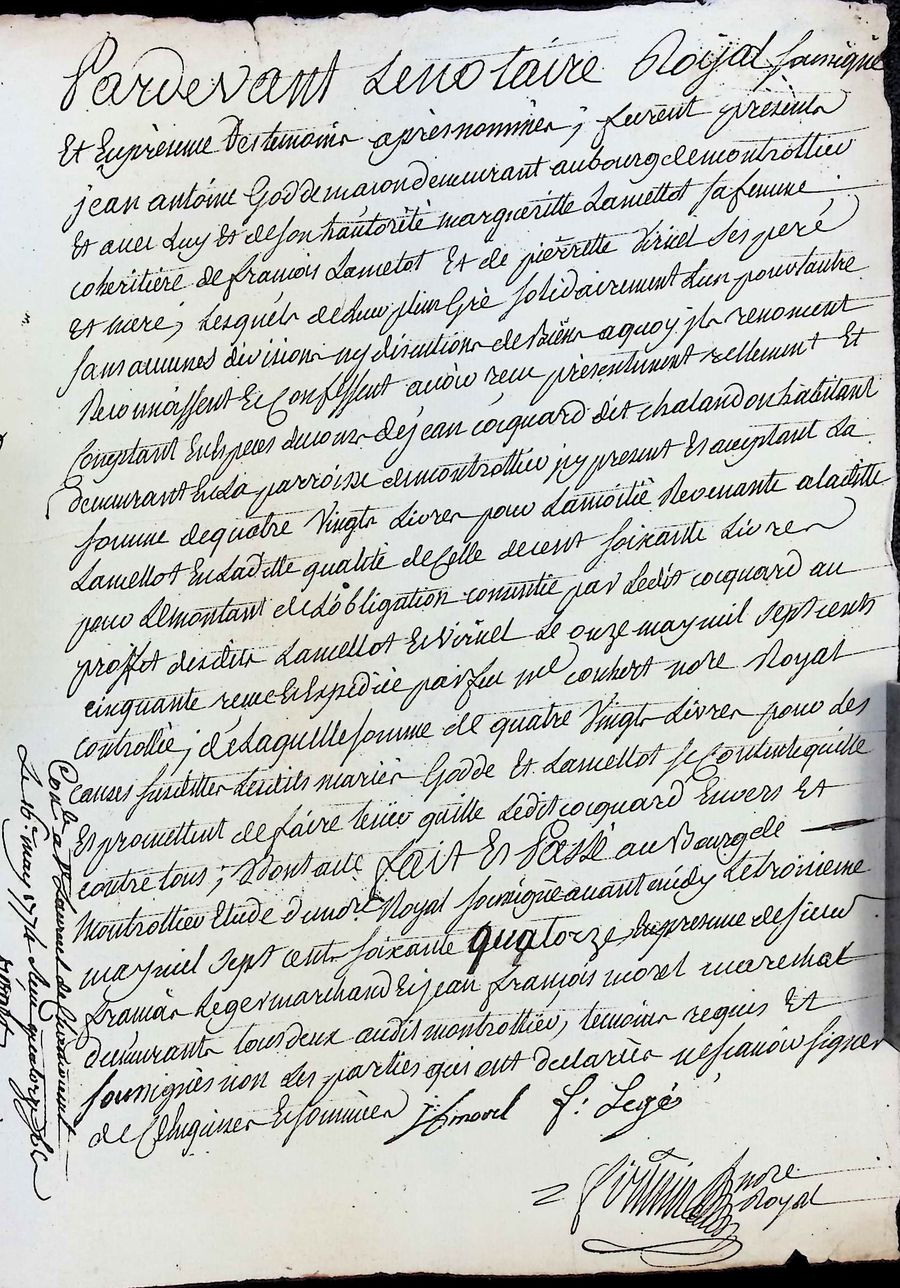 Pardevant Le notaire Royal soussigné
Et En présence Des temoins après nommés ; furent présents
jean antoine Godde maron demeurant au bourg de montrottier
Et avec Luy Et de son hautorité margueritte Lamellot sa femme
coheritiere de francois Lamelot Et de pierrette Viriel ses peré
et meré, Lesquels de Leur plein Gré solidairement L'un pour L'autre
sans aucunes divisions ny discutions de Biens a quoy jls renoncent
Reconnoissent Et Confessent avoir reçu présentement réellement Et
Comptant En Especes de cours de jean cocquard dit chalandon habitant
demeurant En La parroisse de montrottier jcy present Et acceptant La
somme de quatre Vingts Livres pour La moitié Revenante a laditte
Lamellot En Laditte qualité de Celle de cent soixante Livres
pour Le montant de L'obligation consentie par Ledit cocquard au
proffit desdits Lamellot Et Viriel Le onze may mil sept cents
cinquante reçue Et Expediée par feu me couhert nore Royal
controllée ; de Laquelle somme de quatre Vingts Livres pour Les
causes susdittes Lesdits mariés Godde Et Lamellot se Contentequitte
Et promettent de faire tenir quitte Ledit cocquard Envers Et
contre tous ; Dont acte fait Et Passé au Bourg de
Montrottier Etude du nore Royal soussigné avant midy Le troisieme
may mil sept cent soixante quatorze En presence de sieur
francois Leger marchand Et jean françois morel marechal
demeurants tous deux audit montrottier, temoins requis Et
soussignés non Les parties qui ont declarées ne scavoir signer
de Ce Enquises Et sommées jf morel f: Legé
nore
Royal
Con.lé a St Laurent de Chamousset
Le 16e may 1774 Reçu quatorze s